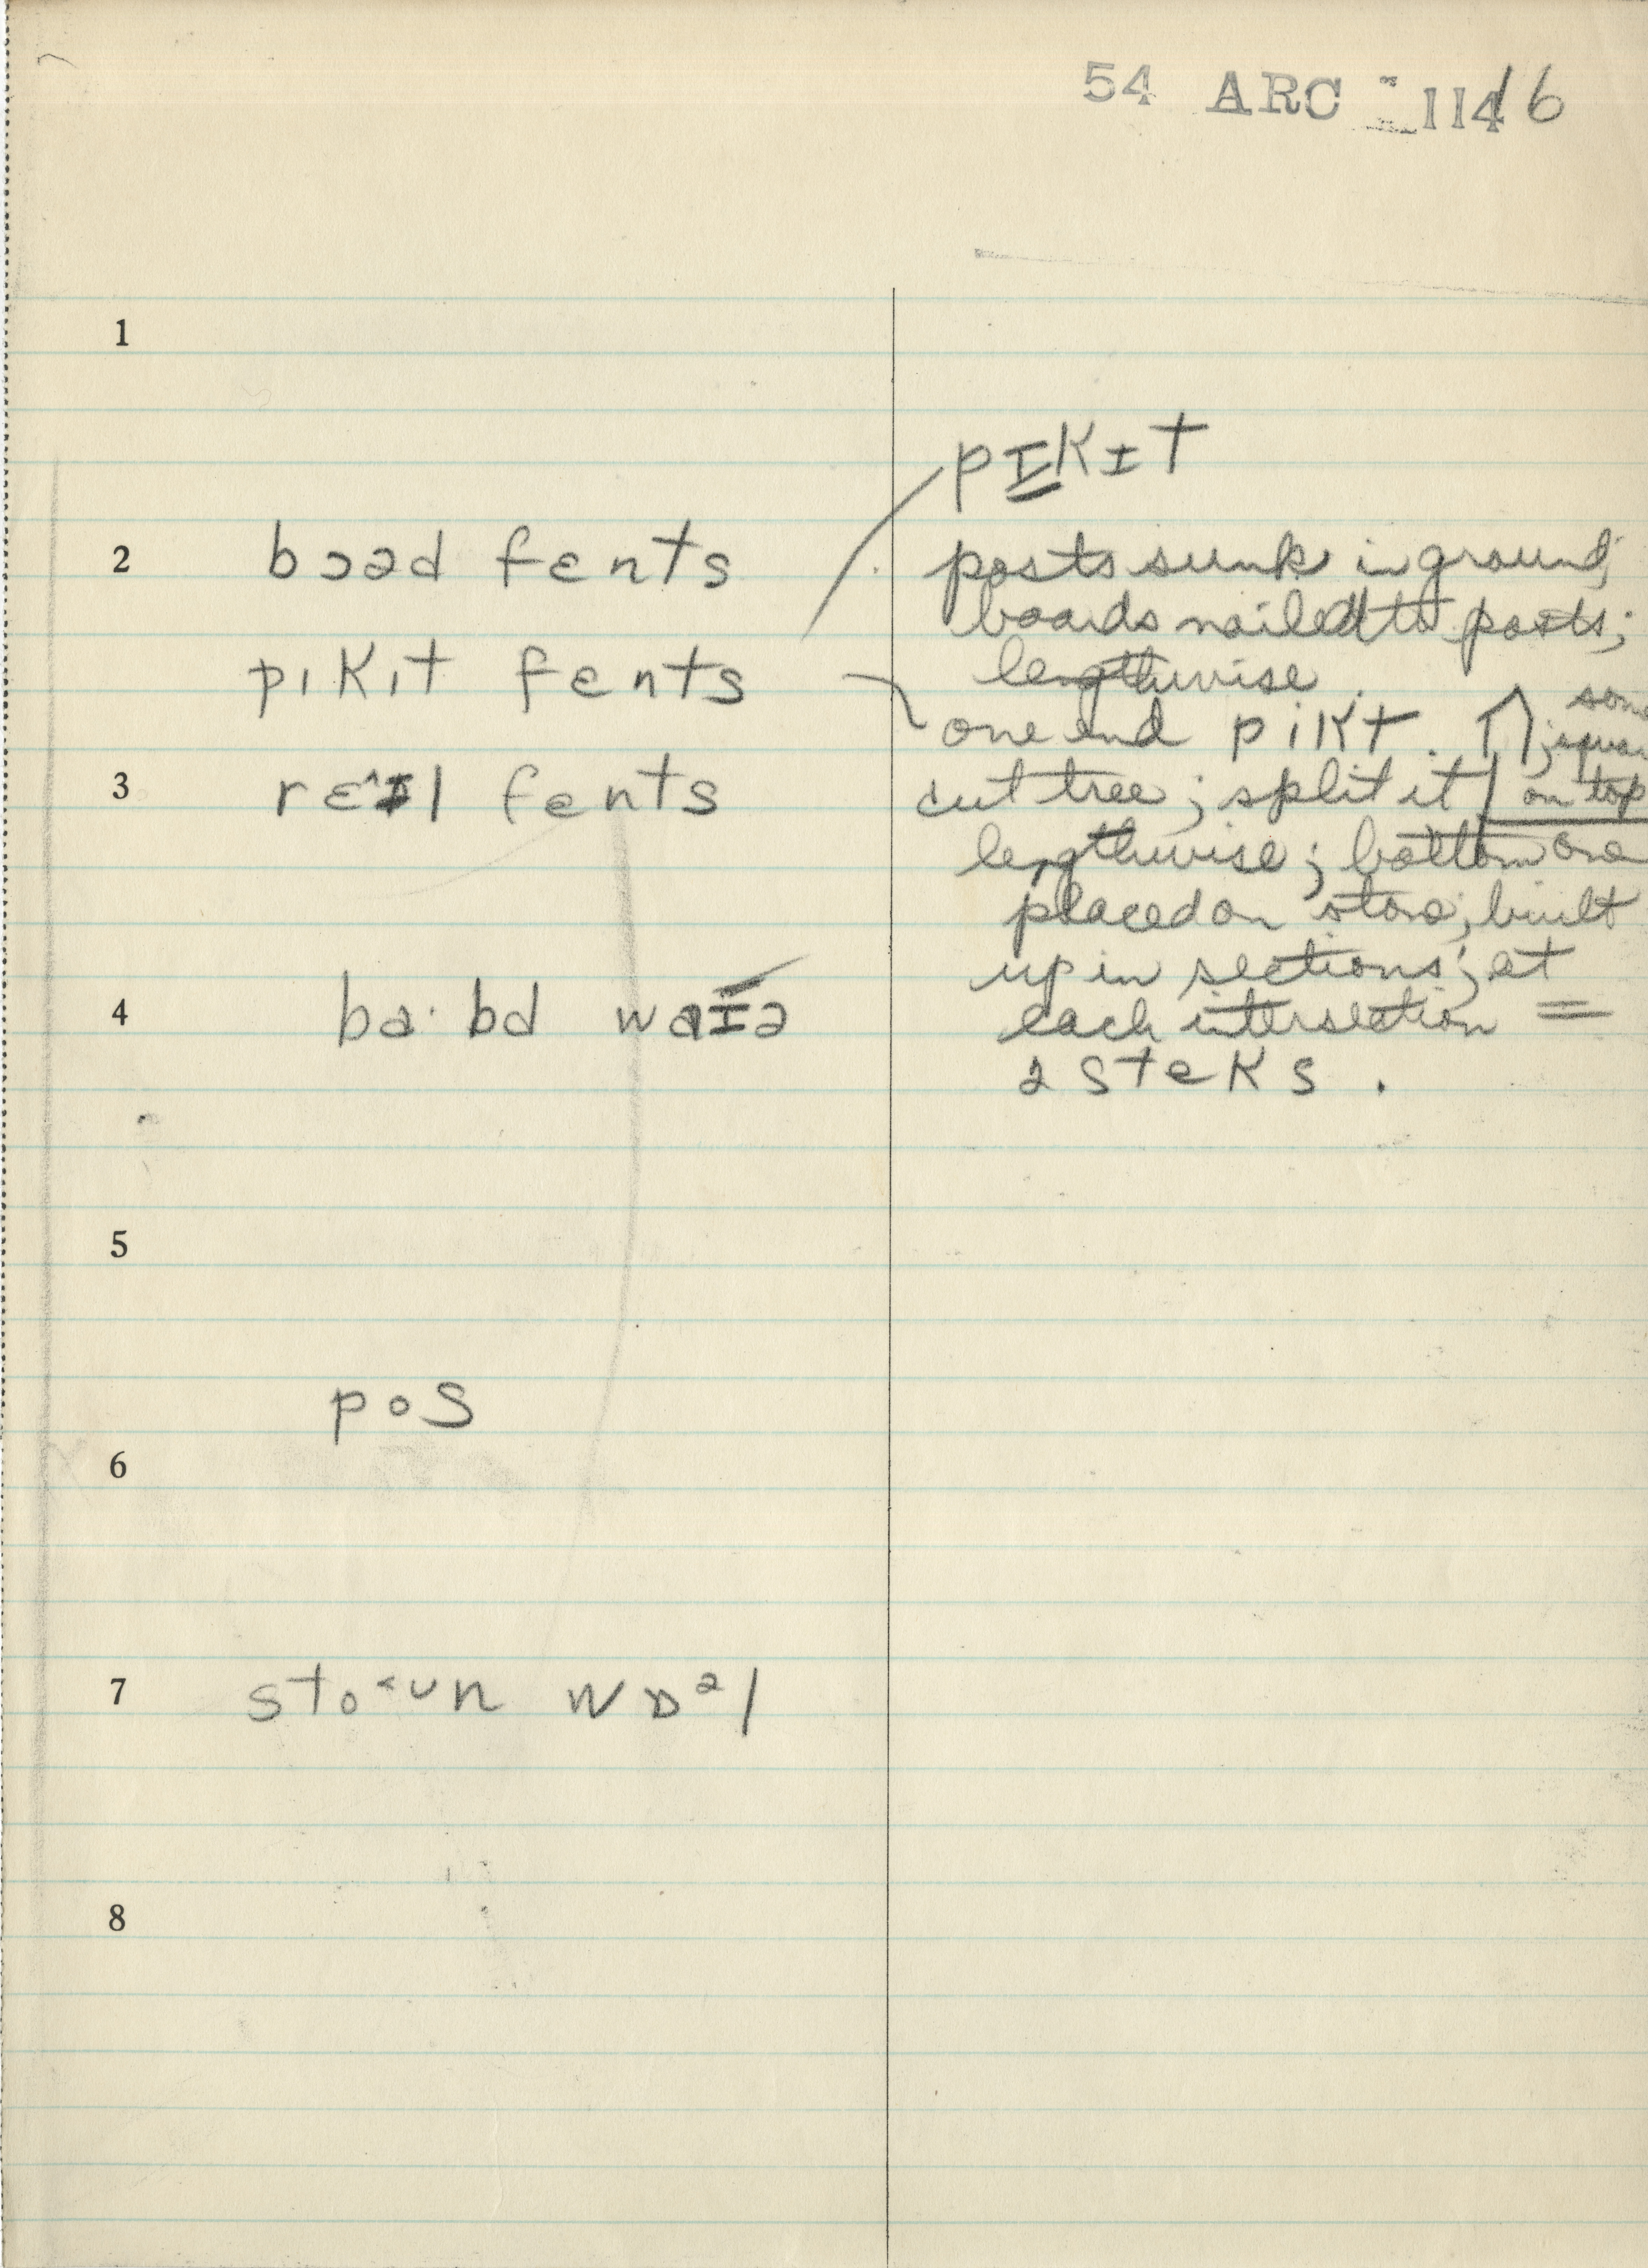 54 ARC 1146
1
pɪkɪt
2 bɔəd fɛnts posts sunk in ground;
boards nailed to posts;
pɪkɪt fɛnts lengthwise.
one end pikt. ; square
3 rɛˆɪl fɛnts cut tree; split it on top
lengthwise; bottom one
placed on stone; built
up in sections; at
4 ba·bd waɪə each intersection =
2 steks.
5
pos
6
7 sto<ʊn wɒəl
8